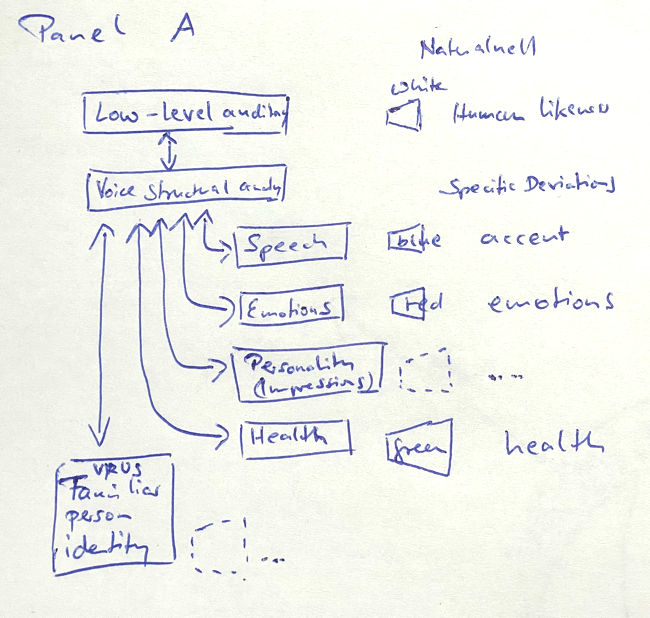 Panel A
Naturalness
white
Low-level auditory
Human likeness
Voice structural analy
Specific Deviations
Speech
blue
accent
Emotions
red
emotions
Personality
(Impressions)
....
Health
green
health
VRUs
Familiar
person
identity
...